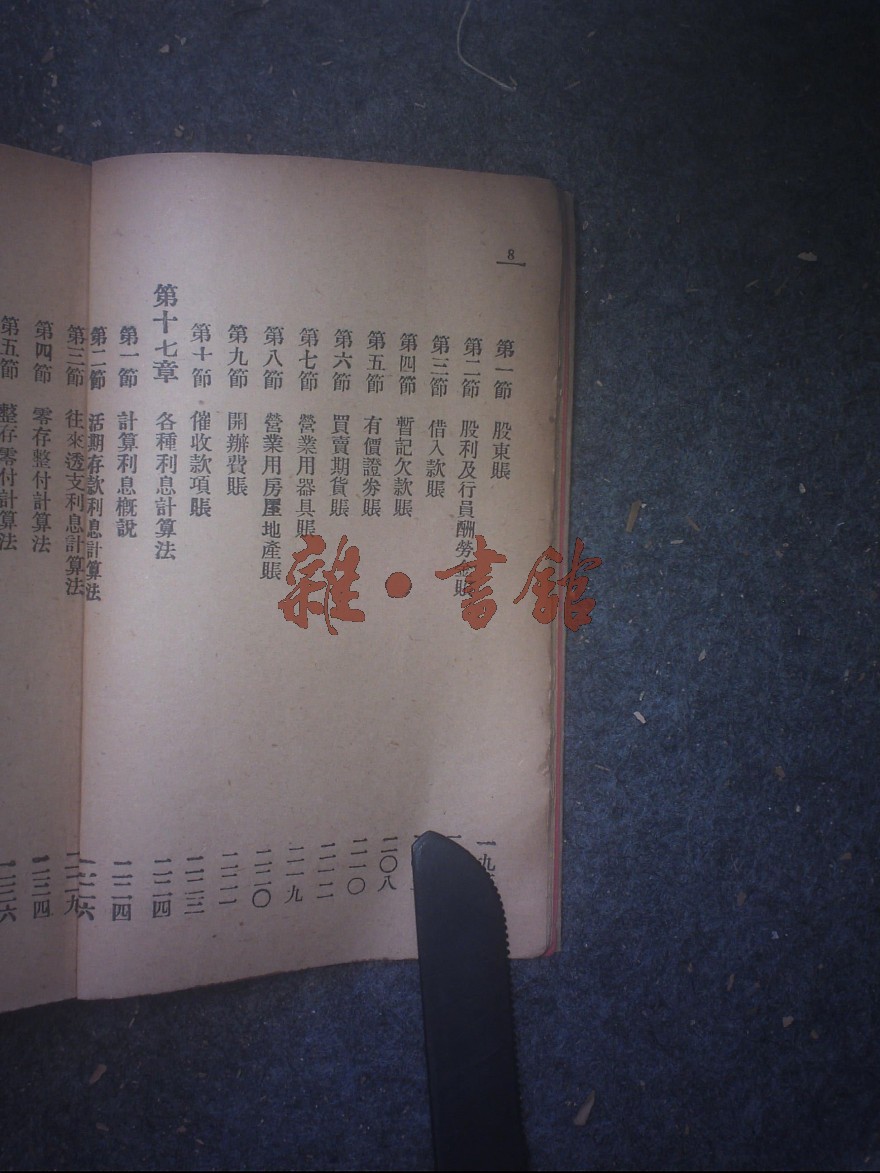 8
第一節 股東賬 一九
第二節 股利及行員酬勞金賬
第三節 借入款賬
第四節 暫記欠款賬 二〇八
第五節 有價證券賬 二一〇
第六節 買賣期貨賬 二一二
第七節 營業用器具賬 二一九
第八節 營業用房屋地產賬 二二〇
第九節 開辦費賬 二二一
第十節 催收款項賬 二二三
第十七章 各種利息計算法 二二四
第一節 計算利息概説 二二四
第二節 活期存款利息計算法 二二六
第三節 往來透支利息計算法 二二九
第四節 零存整付計算法 二三四
第五節 整存零付計算法 二三六
雜·書館